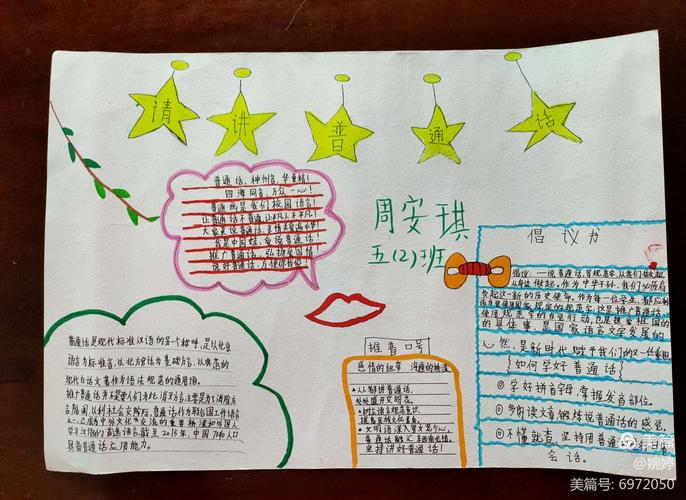 请讲普通话
普通话,神州音,华夏情!
四海同音,万众一心!
普通话是我们校园语言!
让普通话不普通,让平凡人不平凡!
我是中国娃,爱说普通话!
推广普通话,弘扬爱国情
说好普通话,方便你我他!
周安琪
五(2)班
倡议书
倡议:一说普通话,写规范字,从我们做起
从身边做起,作为中华子孙,我们必须肩
负起这一新的历史使命,作为每一位学生,都应
的具体事,是国家语言文学发展的
然,是新时代赋予我们的又一任
如何学好普通话
①学好拼音字母,掌握发音部位。
②多朗读文章锻炼说普通话的感觉。
③不懂就查,坚持用普通话
会话。
推普口号
感情的纽带 沟通的桥梁
人人都讲普通话,
处处盛开文明花。
坚持讲好普通话!
普通话是现代标准汉语的另一个称呼,是以北京
语言为标准音,以北方官话为基础方言,以典范的
现代白话文著作为语法规范的通用语。
推广普通话并不是要人们消灭方言,主要是为了消除方
言隔阂,以利社会交际,普通话作为联合国工作语言
学习汉语的首选语言,截至2015年,中国70%人口
具备普通话应用能力。
美篇
@婉婷
美篇号: 6972050